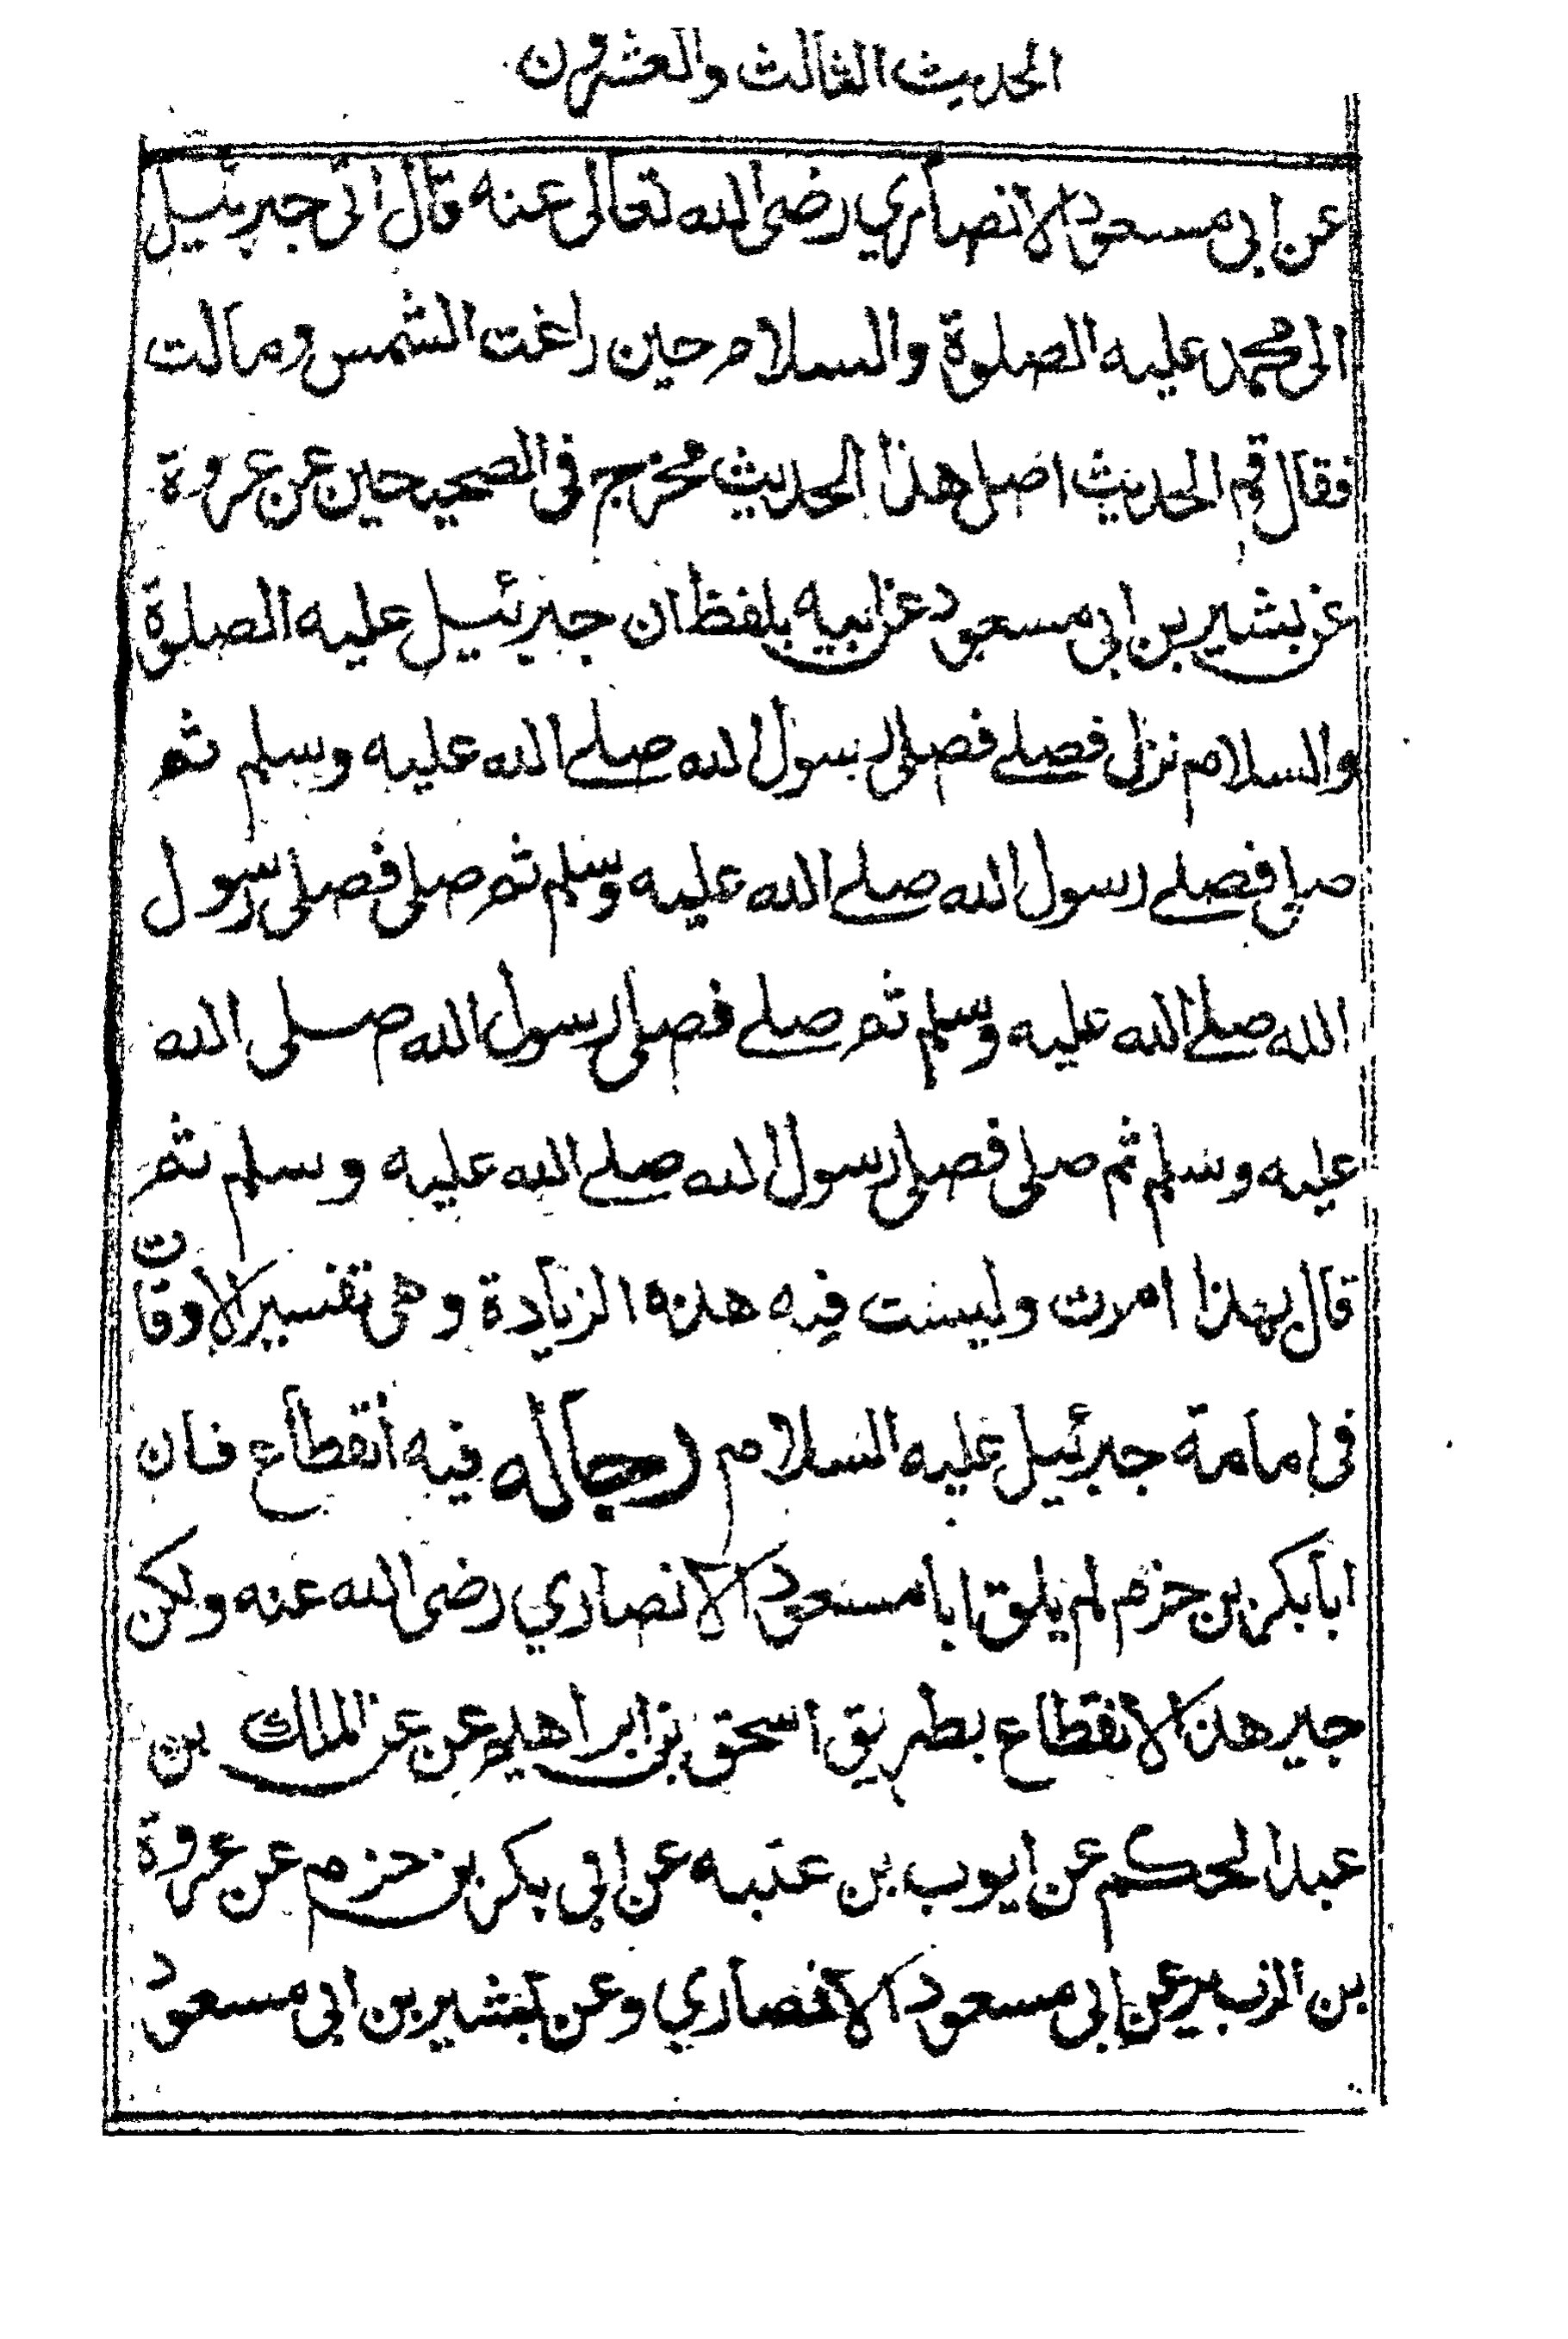 الحديث الثالث والعشرون
عن ابي مسعود الانصاري رضى الله تعالى عنه قال اتى جبرئيل
الى محمد عليه الصلوة والسلام حين راغت الشمس ومالت
فقال قم الحديث اصل هذا الحديث مخرج فى الصحيحين عن عروة
عن بشير بن ابي مسعود عن ابيه بلفظ ان جبرئيل عليه الصلوة
والسلام نزل فصلے فصلى رسول الله صلے الله عليه وسلم ثم
صلى فصلے رسول الله صلے الله عليه وسلم ثم صلى فصلى رسول
الله صلے الله عليه وسلم ثم صلے فصلى رسول الله صلى الله
عليه وسلم ثم صلى فصلى رسول الله صلے الله عليه وسلم ثم
قال بهذا امرت وليست فيه هذه الزيادة وهى تفسير الاوقات
فى امامة جبرئيل عليه السلام رجاله فيه انقطاع فان
ابا بكر بن حزم لم يلق ابا مسعود الانصاري رضى الله عنه ولكن
جبر هذا الانقطاع بطريق اسحق بن ابراهيم عن عن الملك بن
عبد الحكم عن ايوب بن عتبه عن ابي بكر بن حزم عن عروة
بن الزبير عن ابي مسعود الانصاري وعن بشير بن ابي مسعود